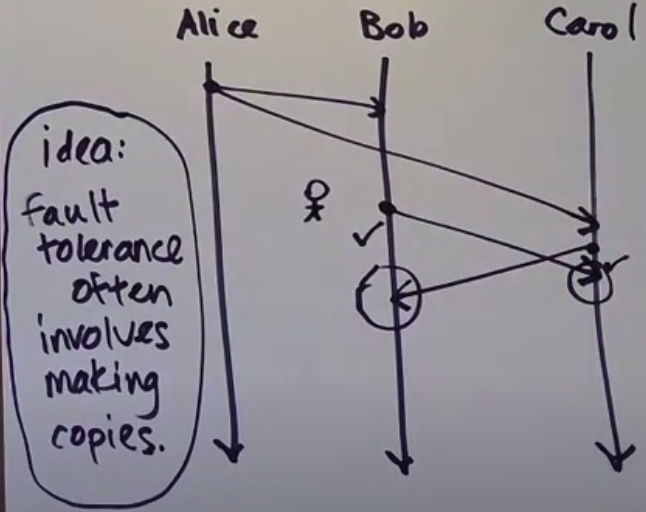 Alice Bob Carol
idea:
fault
tolerance
often
involves
making
copies.